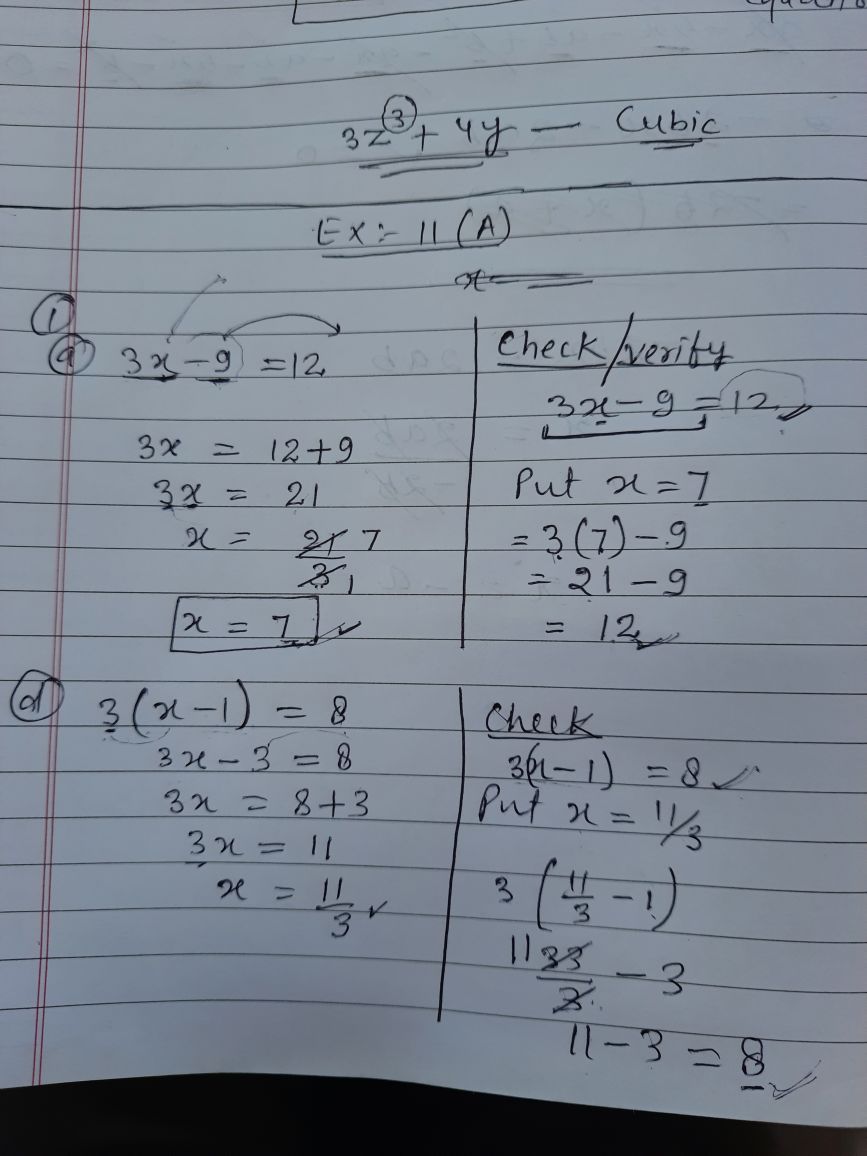 3z³ + 4y — Cubic
Ex:- 11 (A)
①
ⓐ 3x - 9 = 12
3x = 12 + 9
3x = 21
x = 21/3 7 1
x = 7 ✓
Check/verify
3x - 9 = 12
Put x = 7
= 3(7) - 9
= 21 - 9
= 12 ✓
ⓓ 3(x - 1) = 8
3x - 3 = 8
3x = 8 + 3
3x = 11
x = 11/3 ✓
Check
3(x - 1) = 8 ✓
Put x = 11/3
3 (11/3 - 1)
11 33/3 - 3
11 - 3 = 8 ✓